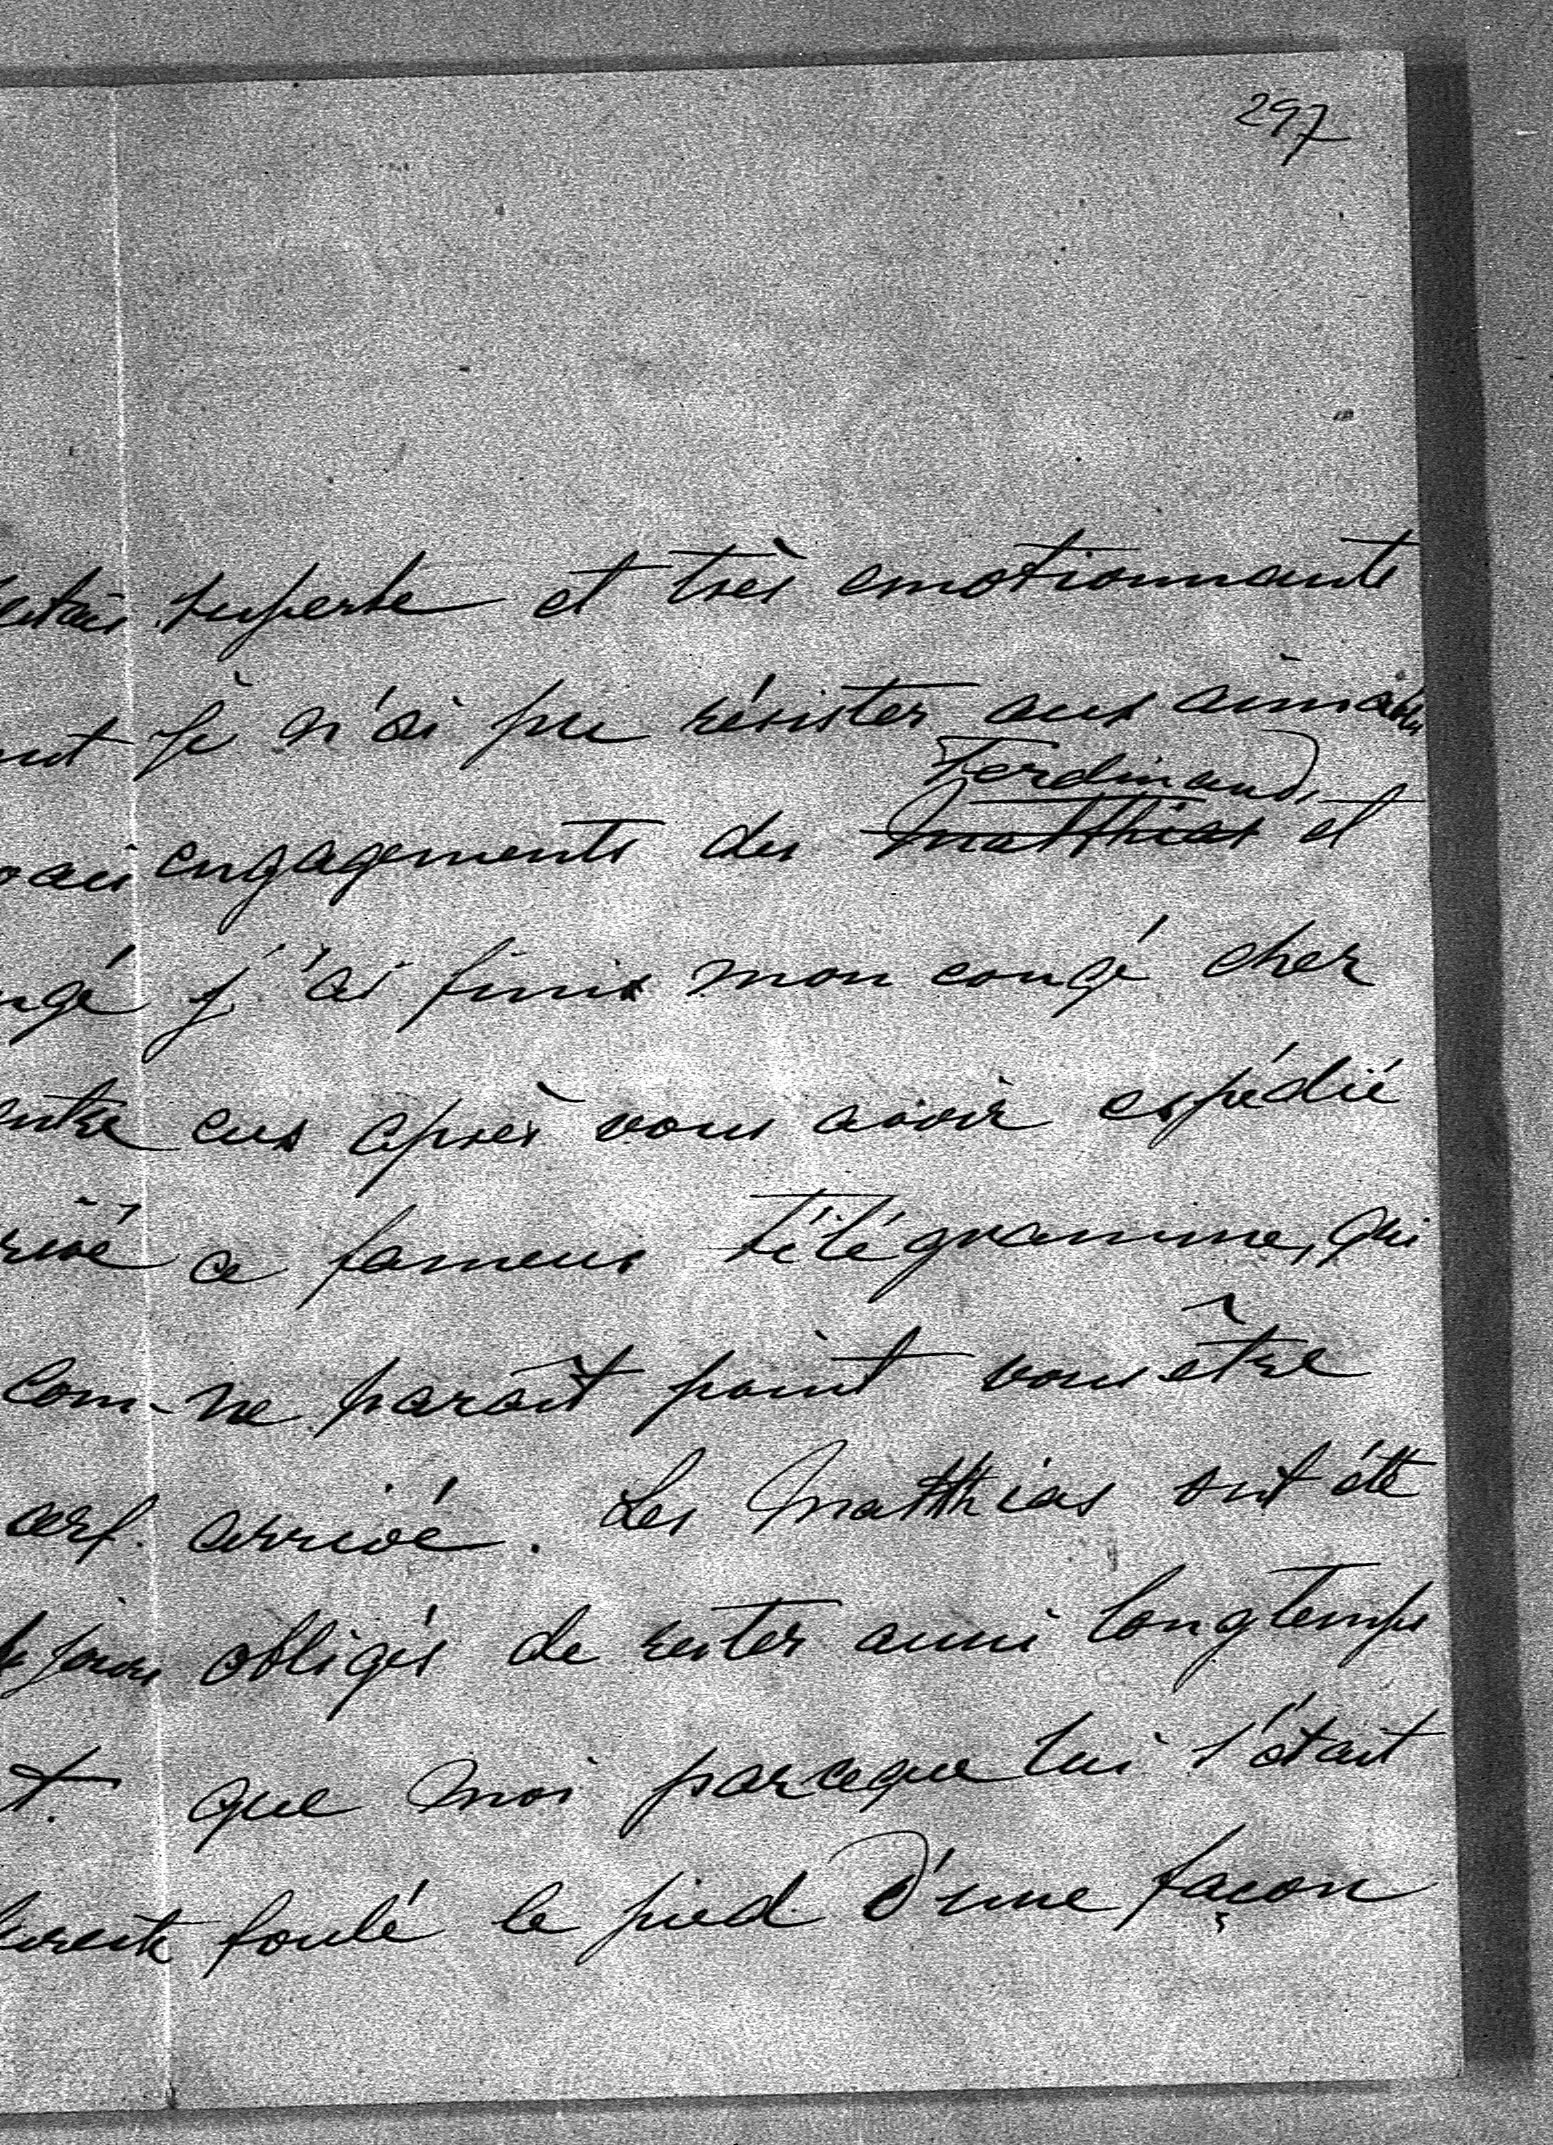 297
superbe et très emotionnante
Je n'ai pu résister aux aimables
Ferdinands
engagements des Matthias et
j'ai finis mon congé chez
eux après vous avoir expédié
ce fameux télégramme, qui
ne paraît point vous être
arrivé. Les Matthias ont été
obligés de rester aussi longtemps
que moi parceque lui s'était
foulé le pied d'une façon